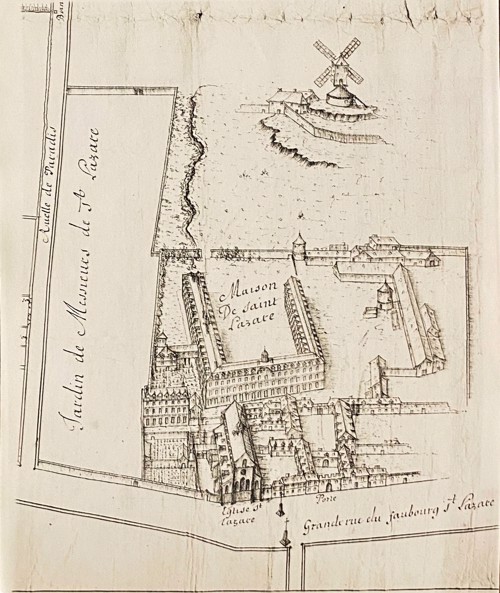 Ruelle de Paradis
Jardin de Messieurs de St Lazare
Maison
De Saint
Lazare
Eglise St
Lazare
Porte
Grande rue du faubourg St Lazare